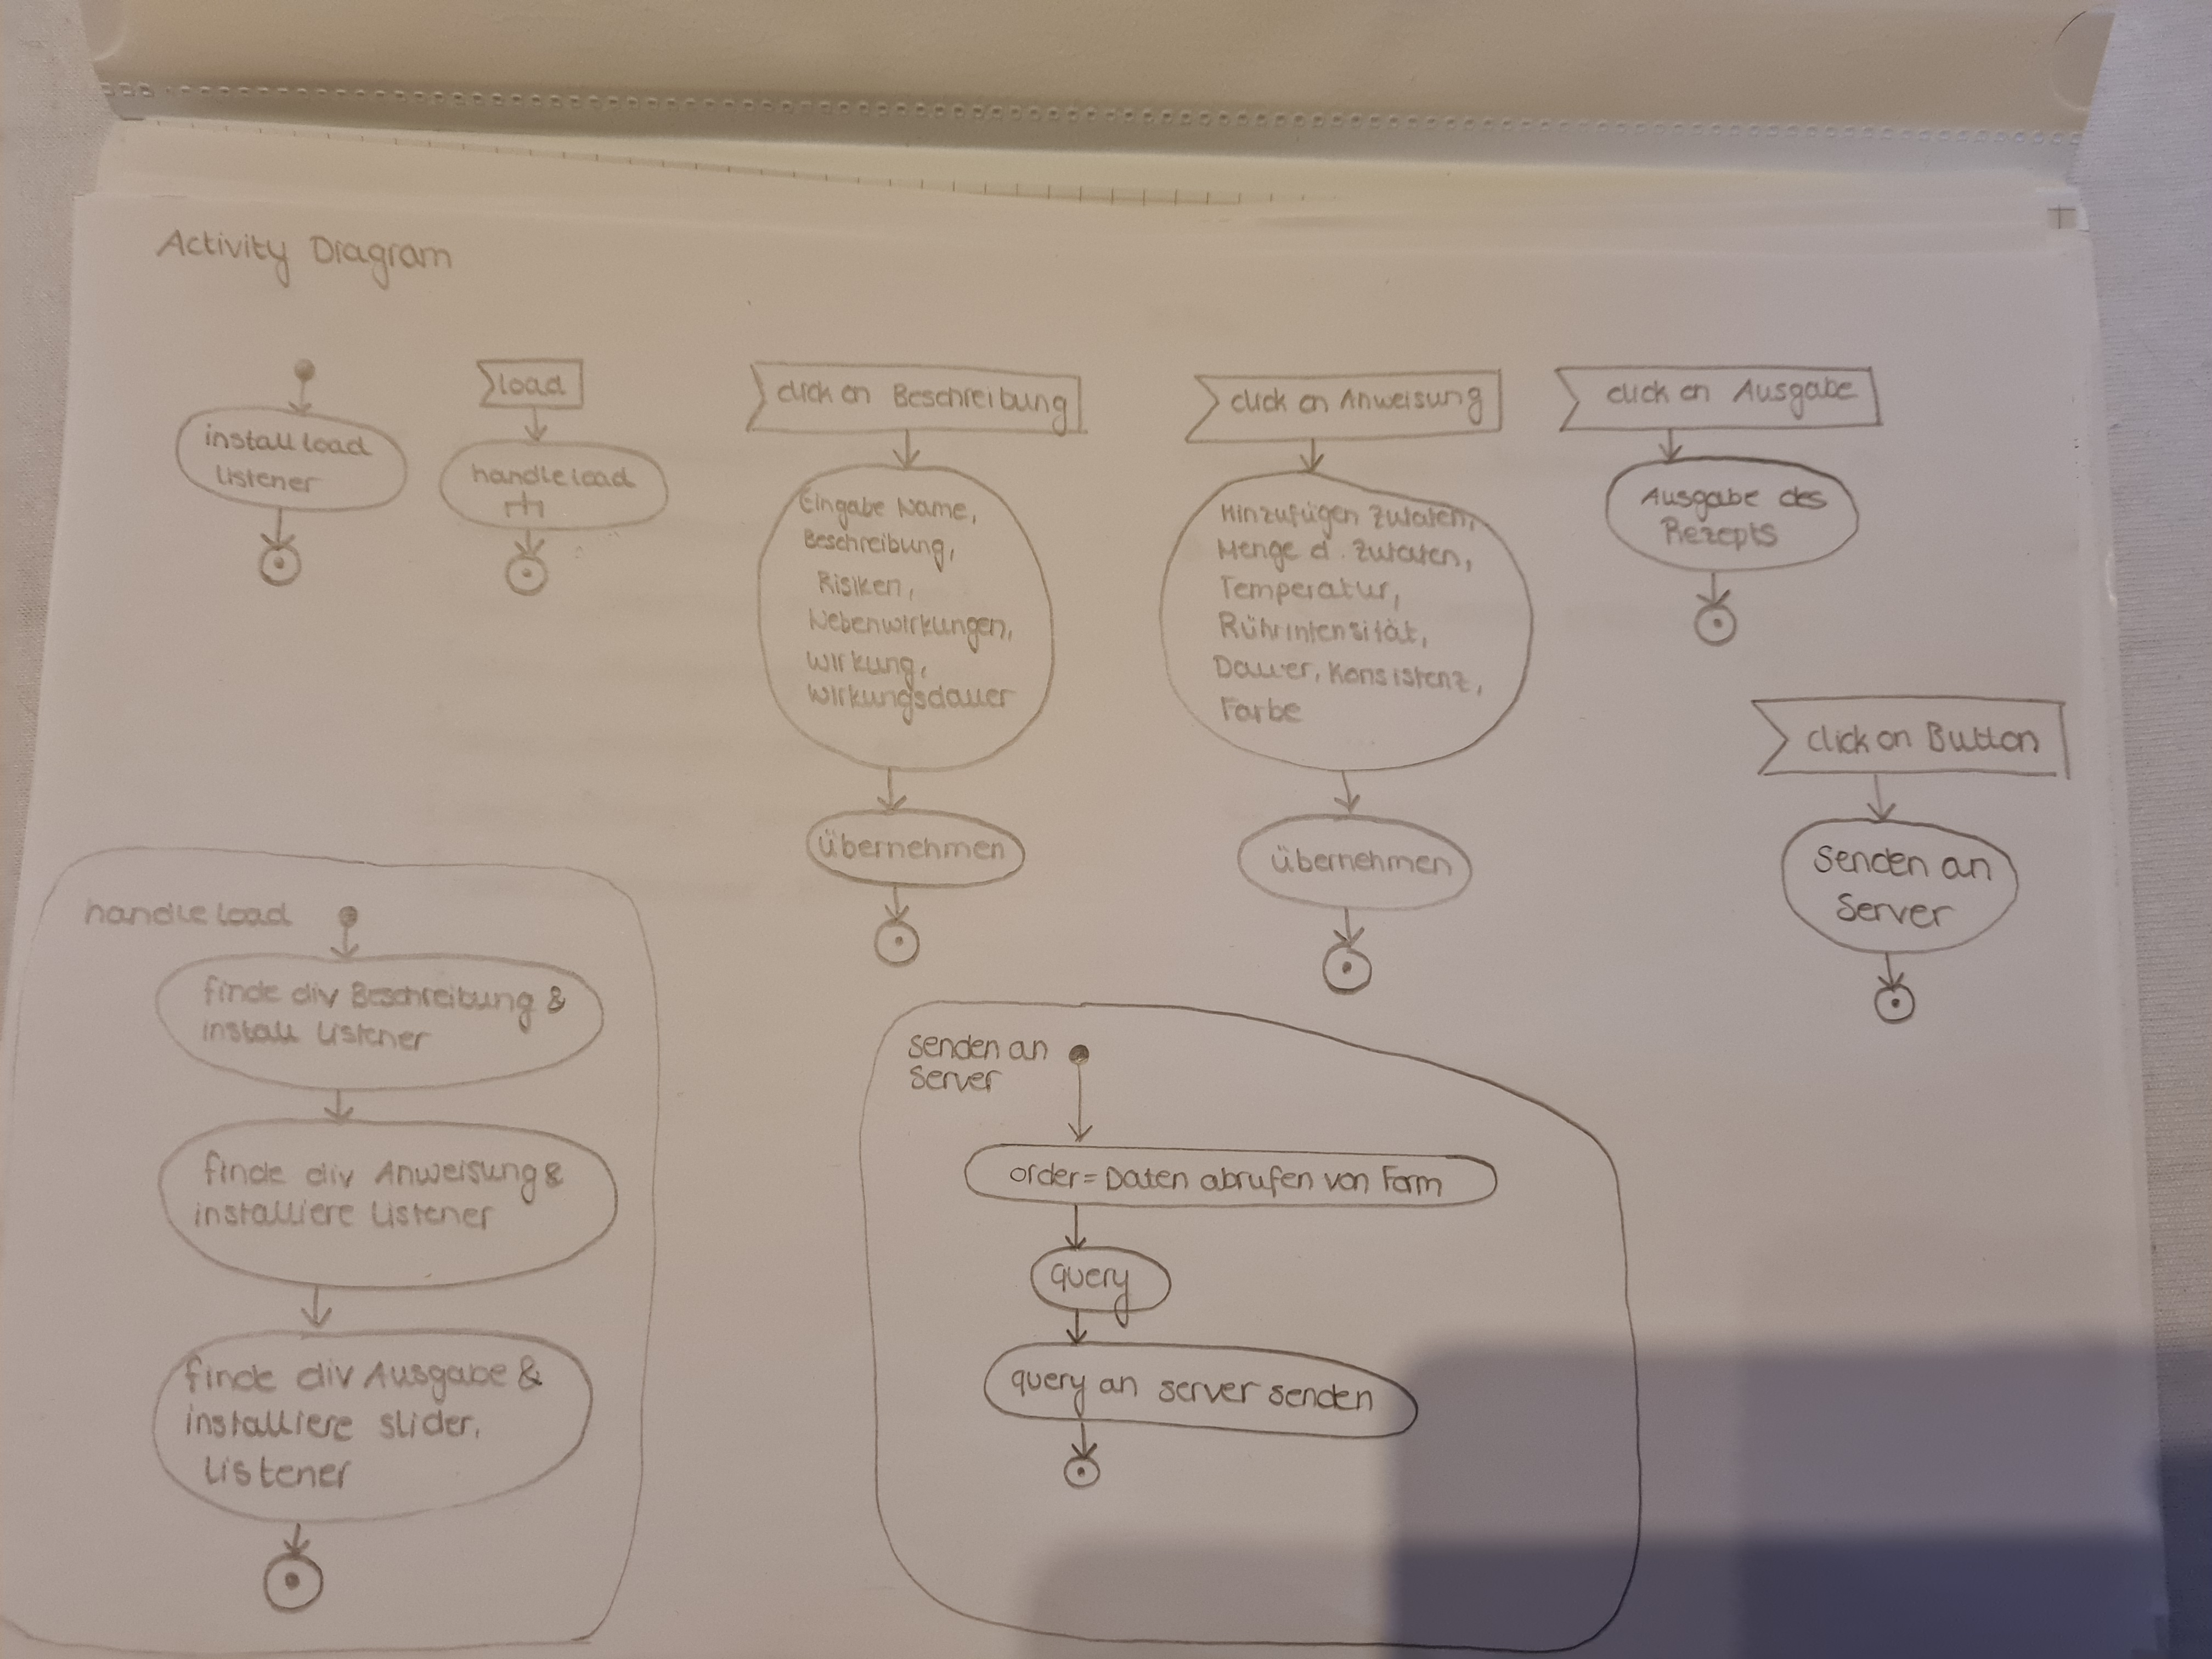 Activity Diagram
install load
listener
load
handle load
click on Beschreibung
Eingabe Name,
Beschreibung,
Risiken,
Nebenwirkungen,
Wirkung,
Wirkungsdauer
übernehmen
click on Anweisung
Hinzufügen Zutaten,
Menge d. Zutaten,
Temperatur,
Rührintensität,
Dauer, Konsistenz,
Farbe
übernehmen
click on Ausgabe
Ausgabe des
Rezepts
click on Button
senden an
Server
handle load
finde div Beschreibung &
install Listener
finde div Anweisung &
installiere Listener
finde div Ausgabe &
installiere slider,
Listener
senden an
Server
order = Daten abrufen von Form
query
query an server senden